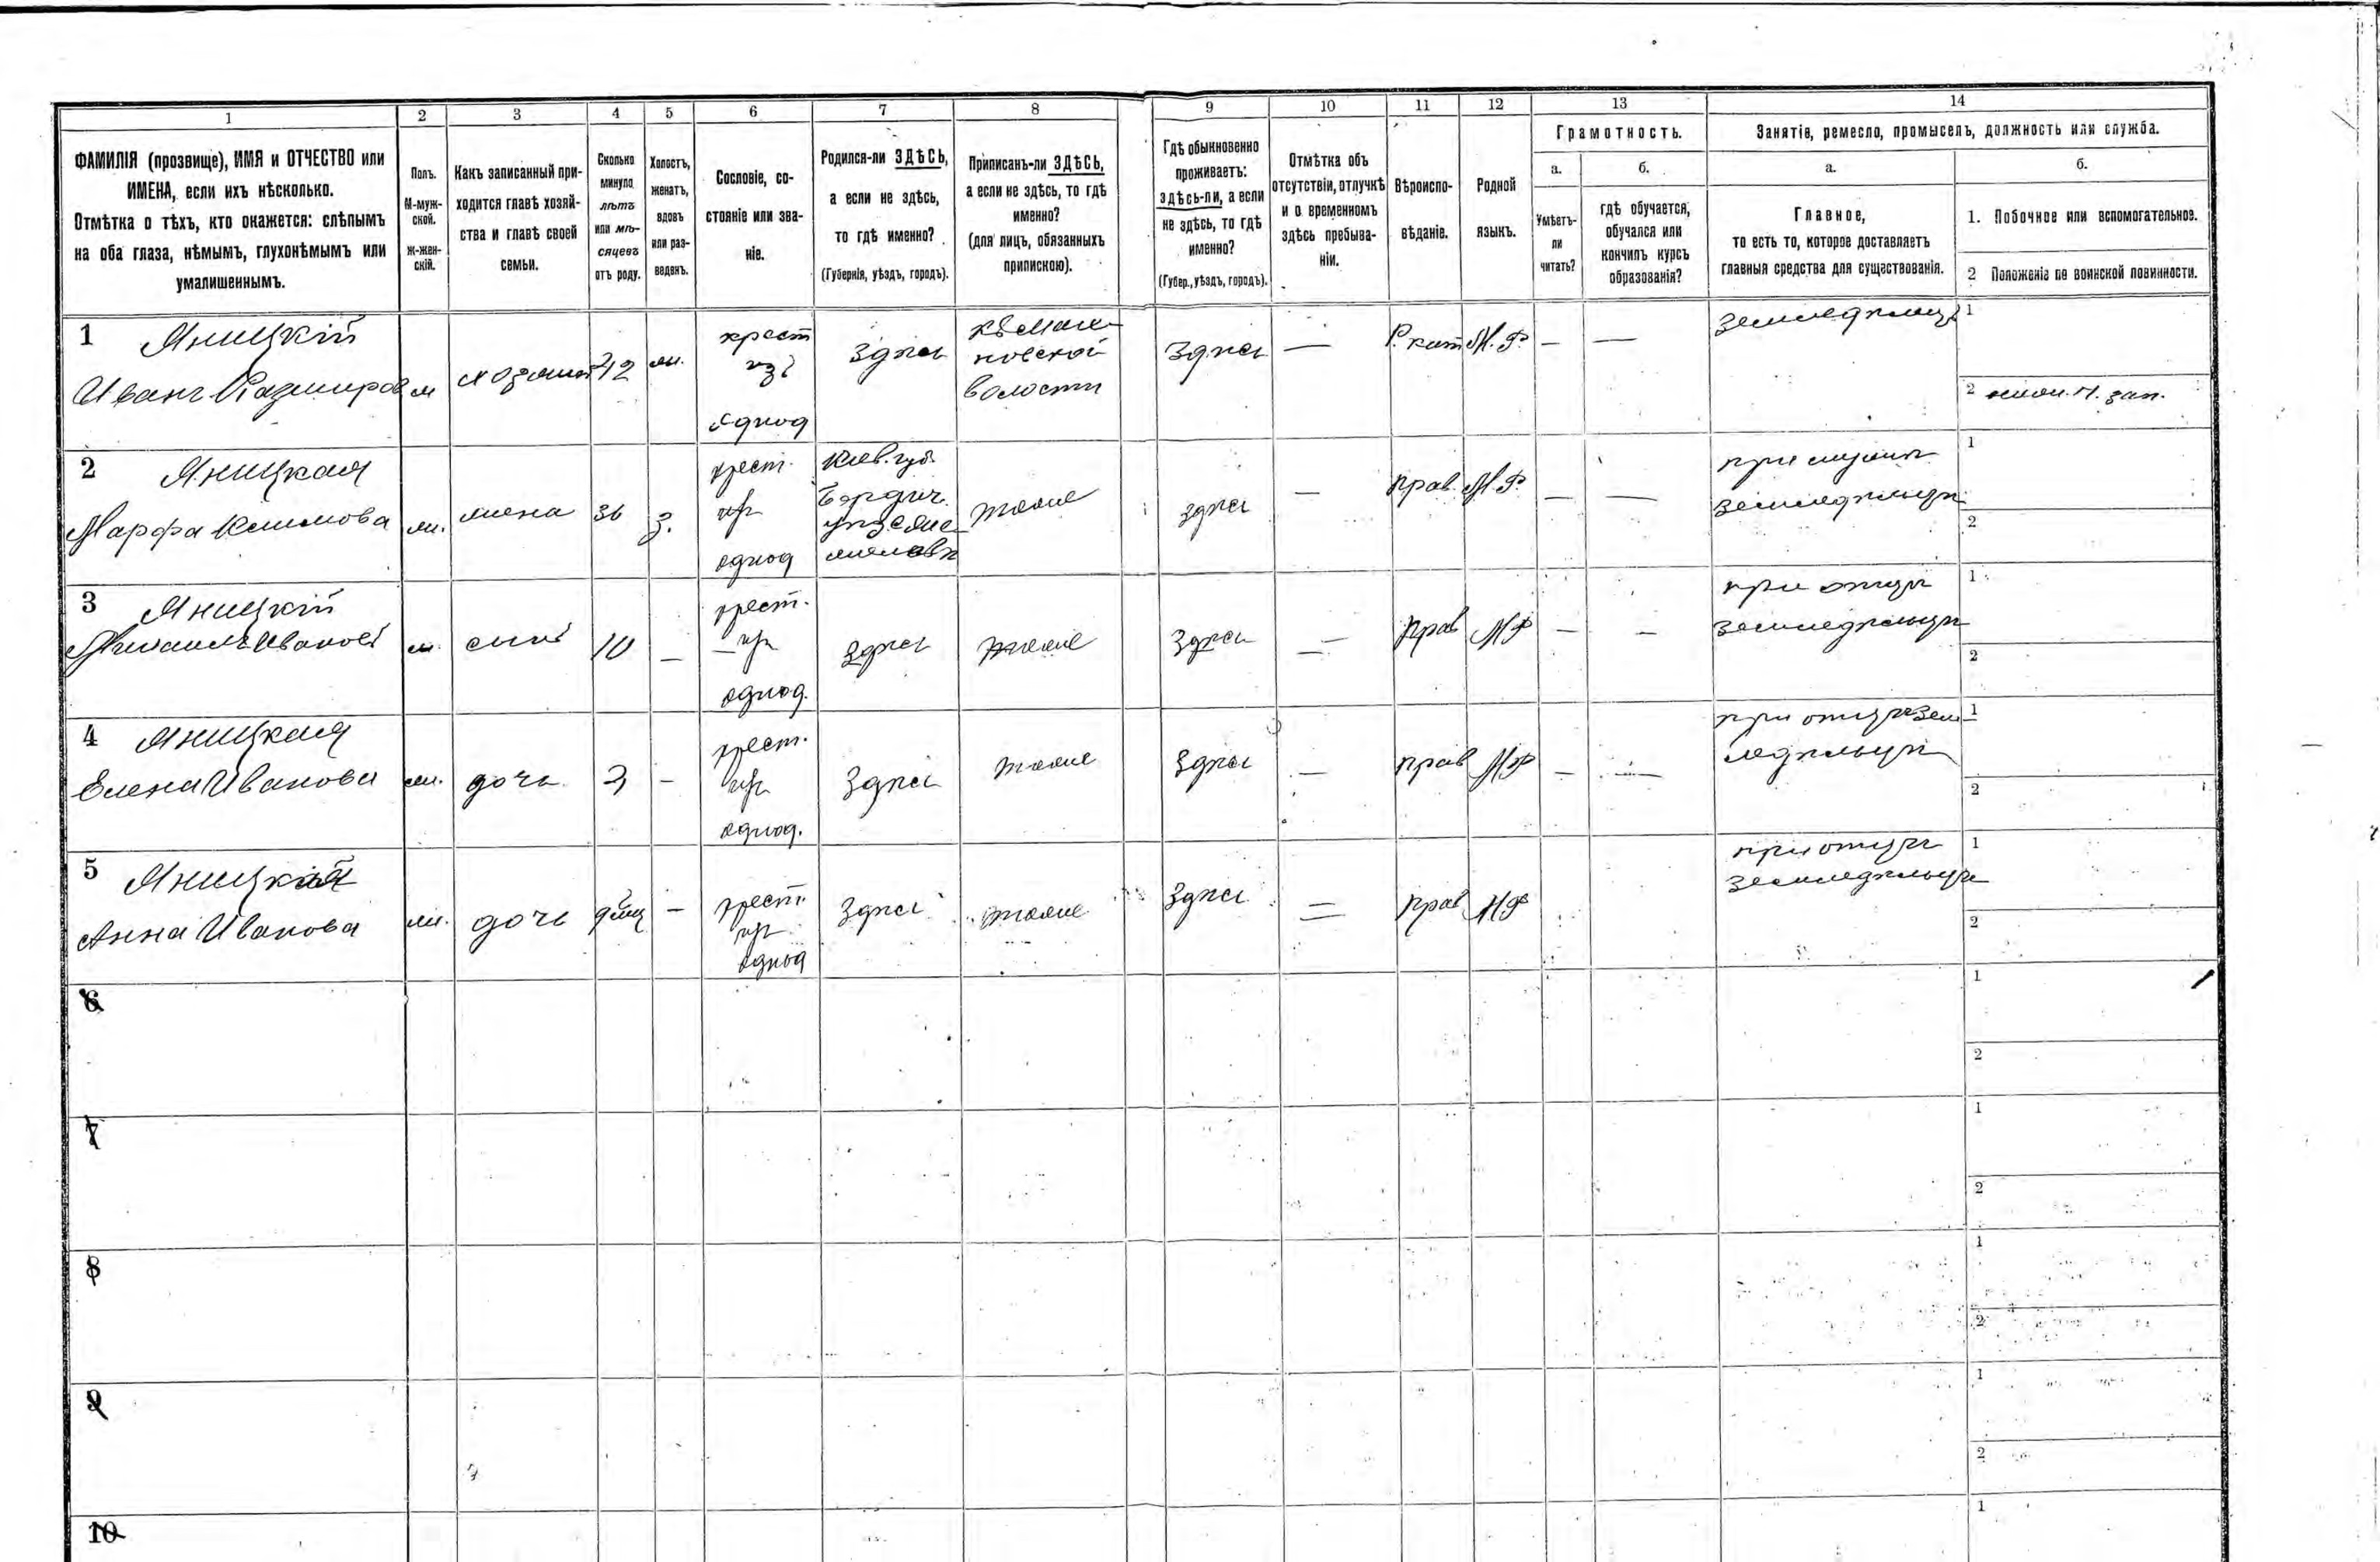 1
2
3
4
5
6
7
8
9
10
11
12
13
14
ФАМИЛІЯ (прозвище), ИМЯ и ОТЧЕСТВО или
ИМЕНА, если ихъ нѣсколько.
Отмѣтка о тѣхъ, кто окажется: слѣпымъ
на оба глаза, нѣмымъ, глухонѣмымъ или
умалишеннымъ.
Полъ.
М-муж-
ской.
Ж-жен-
скій.
Какъ записанный при-
ходится главѣ хозяй-
ства и главѣ своей
семьи.
Сколько
минуло
лѣтъ
или мѣ-
сяцевъ
отъ роду.
Холостъ,
женатъ,
вдовъ
или раз-
веденъ.
Сословіе, со-
стояніе или зва-
ніе.
Родился-ли ЗДѢСЬ,
а если не здѣсь,
то гдѣ именно?
(Губернія, уѣздъ, городъ).
Приписанъ-ли ЗДѢСЬ,
а если не здѣсь, то гдѣ
именно?
(для лицъ, обязанныхъ
припискою).
Гдѣ обыкновенно
проживаетъ:
здѣсь-ли, а если
не здѣсь, то гдѣ
именно?
(Губер., уѣздъ, городъ).
Отмѣтка объ
отсутствіи, отлучкѣ
и о временномъ
здѣсь пребыва-
ніи.
Вѣроиспо-
вѣданіе.
Родной
языкъ.
Грамотность.
а.
Умѣетъ-
ли
читать?
б.
гдѣ обучается,
обучался или
кончилъ курсъ
образованія?
Занятіе, ремесло, промыселъ, должность или служба.
а.
Главное,
то есть то, которое доставляетъ
главныя средства для существованія.
б.
1. Побочное или вспомогательное.
2 Положеніе по воинской повинности.
1 Яницкій
Иванъ Казимиров
м
хозяинъ
42
ж.
крест
изъ
однод
здѣсь
волости
Здѣсь
—
Р. кат
М. Р.
—
—
земледѣлецъ
1
2
зап.
2 Яницкая
Марфа Климова
ж.
жена
36
З.
крест.
изъ
однод
Кіев. губ.
Бердич.
тоже
здѣсь
—
прав.
М. Р.
—
—
при мужѣ
земледѣльцѣ
1
2
3 Яницкій
Иванов
м.
сынъ
10
—
крест.
изъ
однод.
здѣсь
тоже
Здѣсь
—
прав
МР
—
—
при отцѣ
земледѣльцѣ
1
2
4 Яницкая
Елена Иванова
ж.
дочь
3
—
крест.
изъ
однод.
Здѣсь
тоже
Здѣсь
—
прав
МР
—
—
при отцѣ зем
ледѣльцѣ
1
2
5 Яницкая
Анна Иванова
ж.
дочь
9 мц
—
крест.
изъ
однод
Здѣсь
тоже
Здѣсь
—
прав
МР
при отцѣ
земледѣльцѣ
1
2
6
1
2
7
1
2
8
1
2
9
1
2
10
1